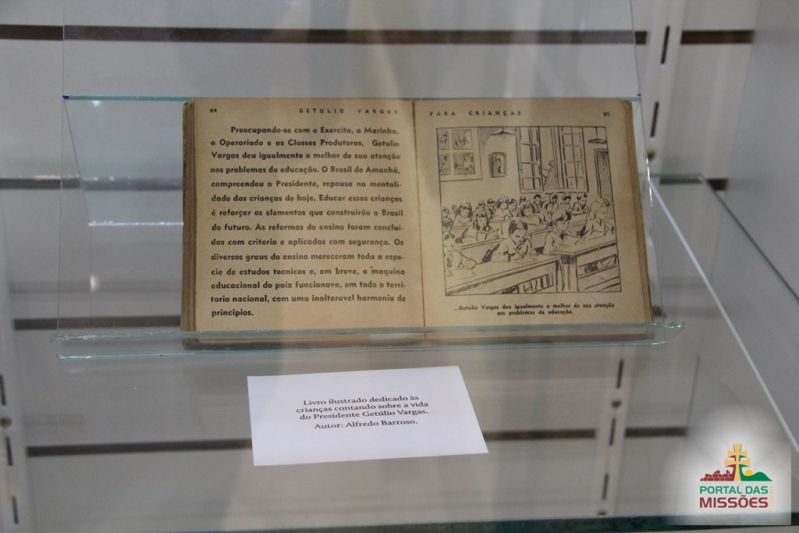 64 GETULIO VARGAS
Preocupando-se com o Exercito, a Marinha,
o Operariado e as Classes Produtoras, Getulio
Vargas deu igualmente o melhor de sua atenção
aos problemas da educação. O Brasil de Amanhã,
compreendeu o Presidente, repousa na mentali-
dade das crianças de hoje. Educar essas crianças
é reforçar os elementos que construirão o Brasil
do futuro. As reformas do ensino foram conclui-
das com criterio e aplicadas com segurança. Os
diversos graus do ensino mereceram toda a espe-
cie de estudos tecnicos e, em breve, a maquina
educacional do paiz funcionava, em todo o terri-
torio nacional, com uma inalteravel harmonia de
principios.
PARA CRIANÇAS 65
...Getulio Vargas deu igualmente o melhor de sua atenção
aos problemas da educação.
Livro ilustrado dedicado às
crianças contando sobre a vida
do Presidente Getúlio Vargas.
Autor: Alfredo Barroso.
PORTAL DAS
MISSÕES